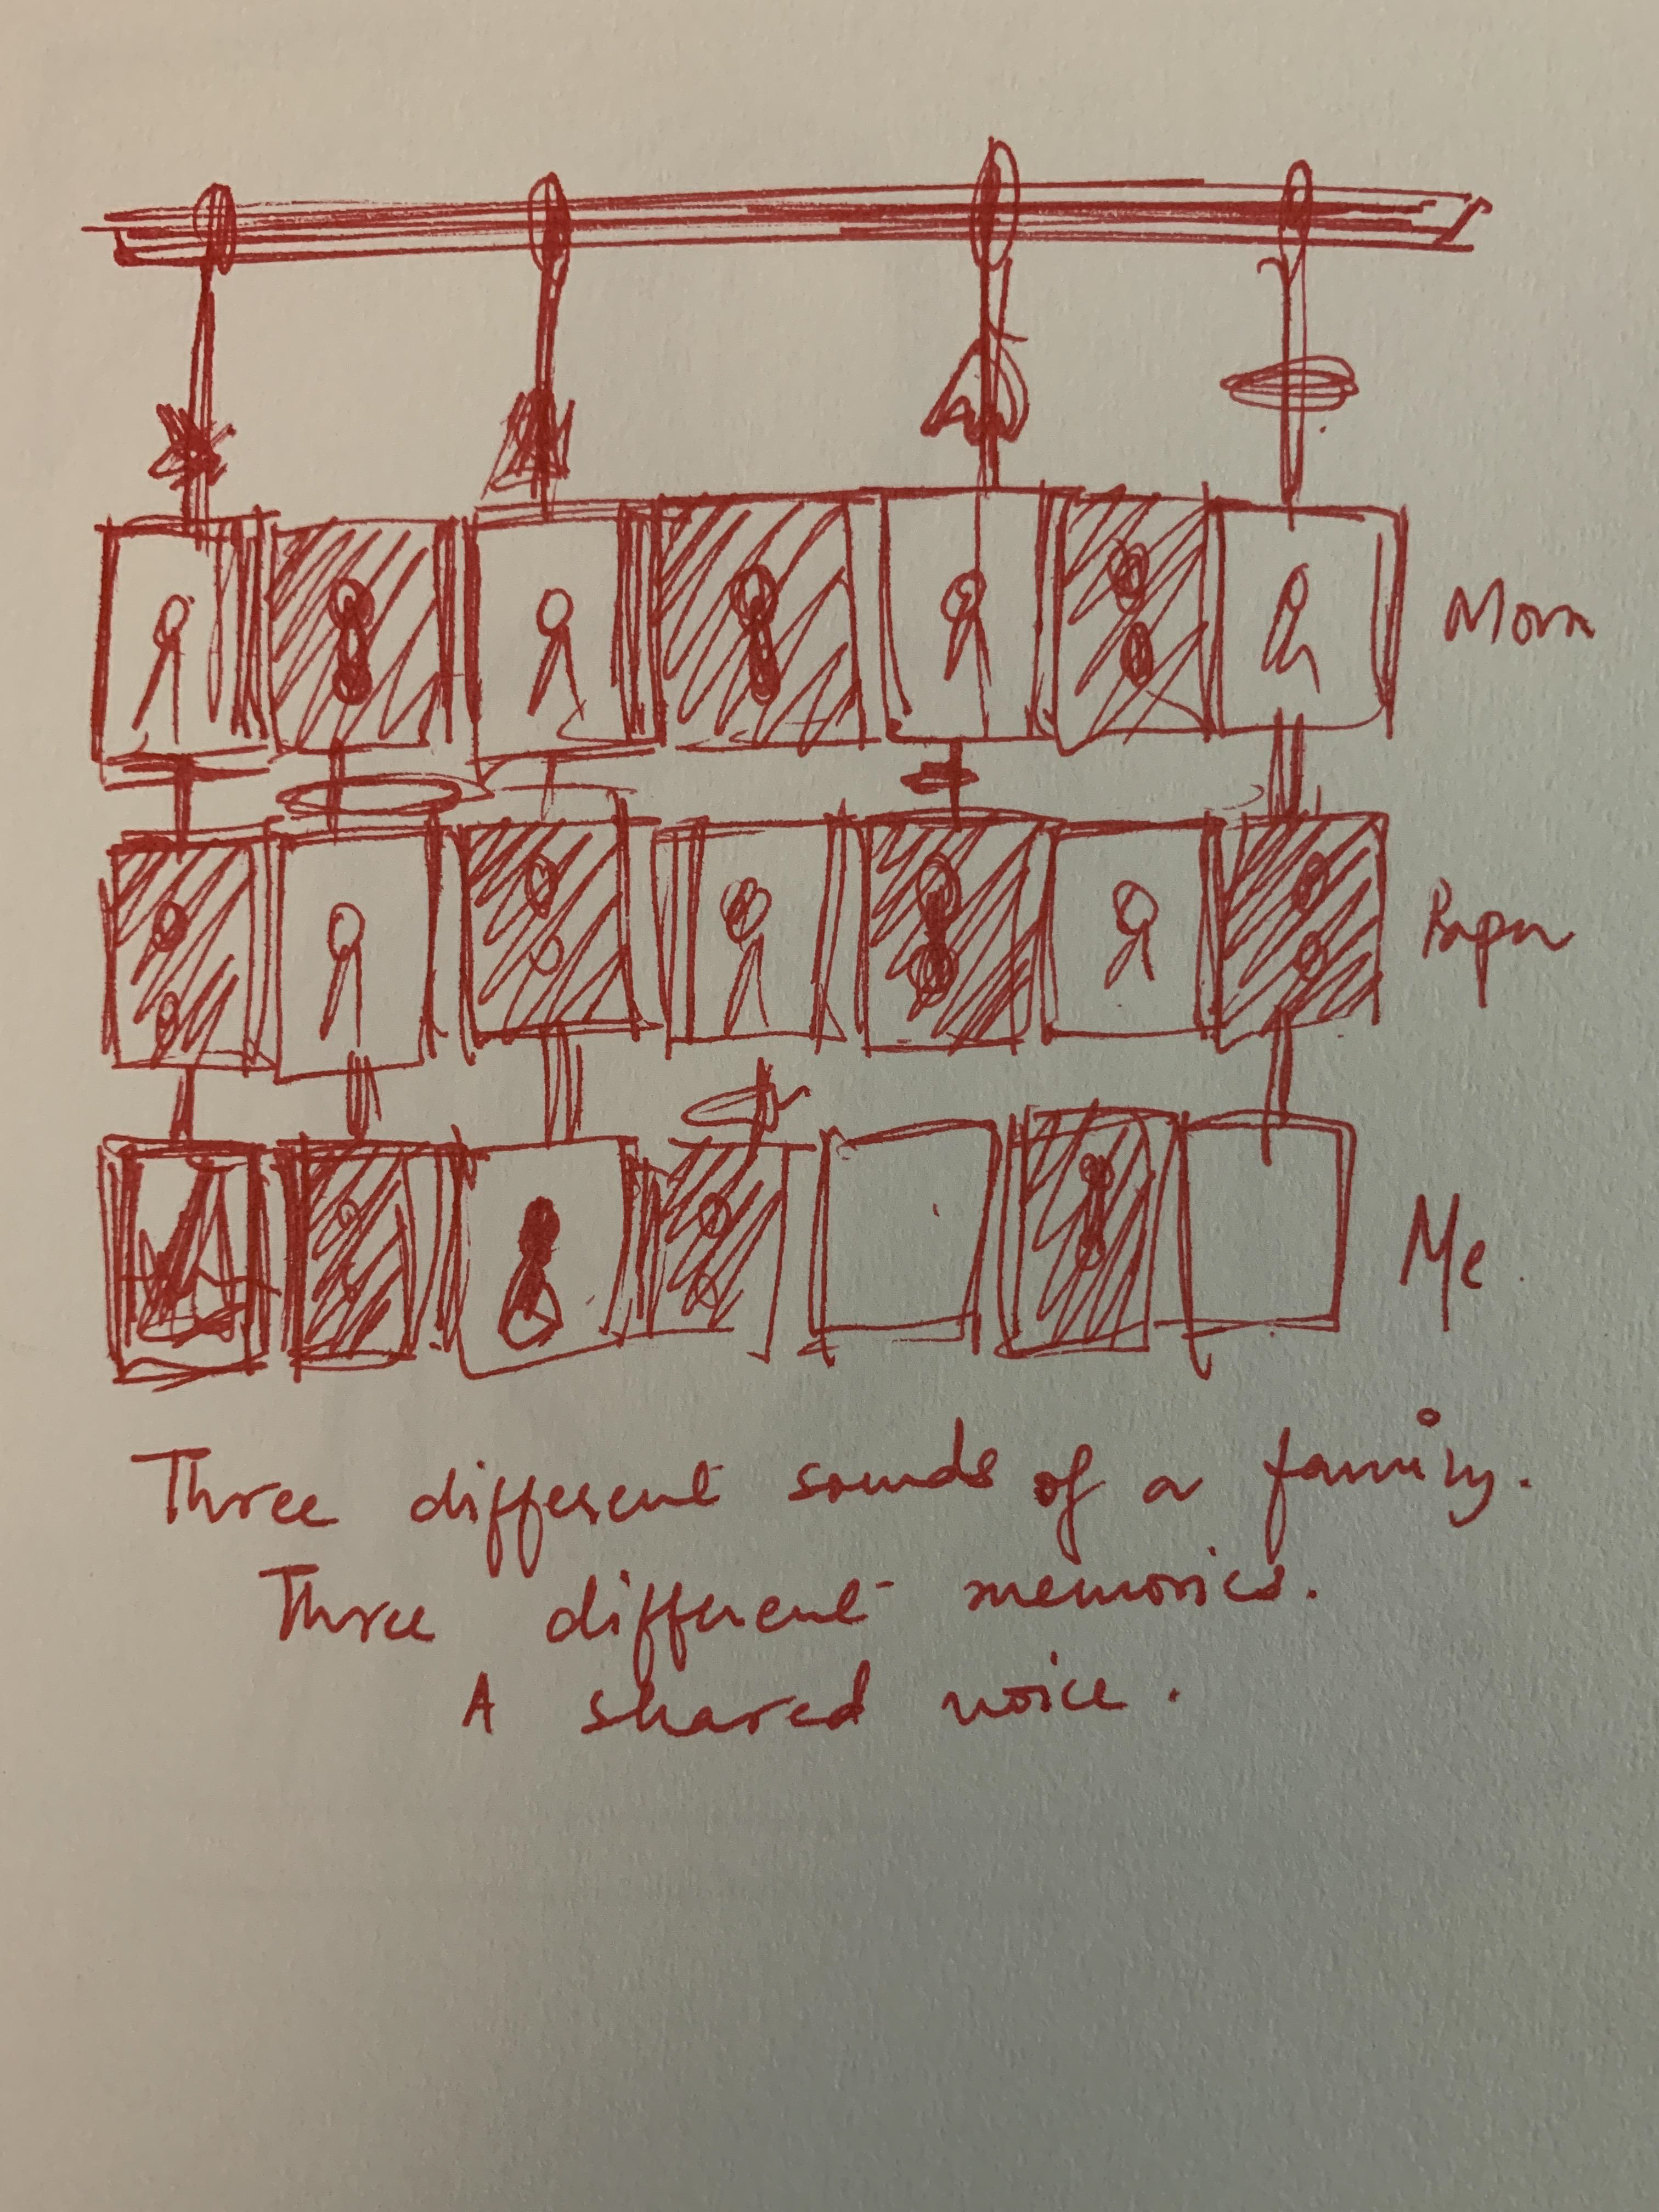 Mom
Papa
Me.
Three different sounds of a family.
Three different memories.
A shared voice.